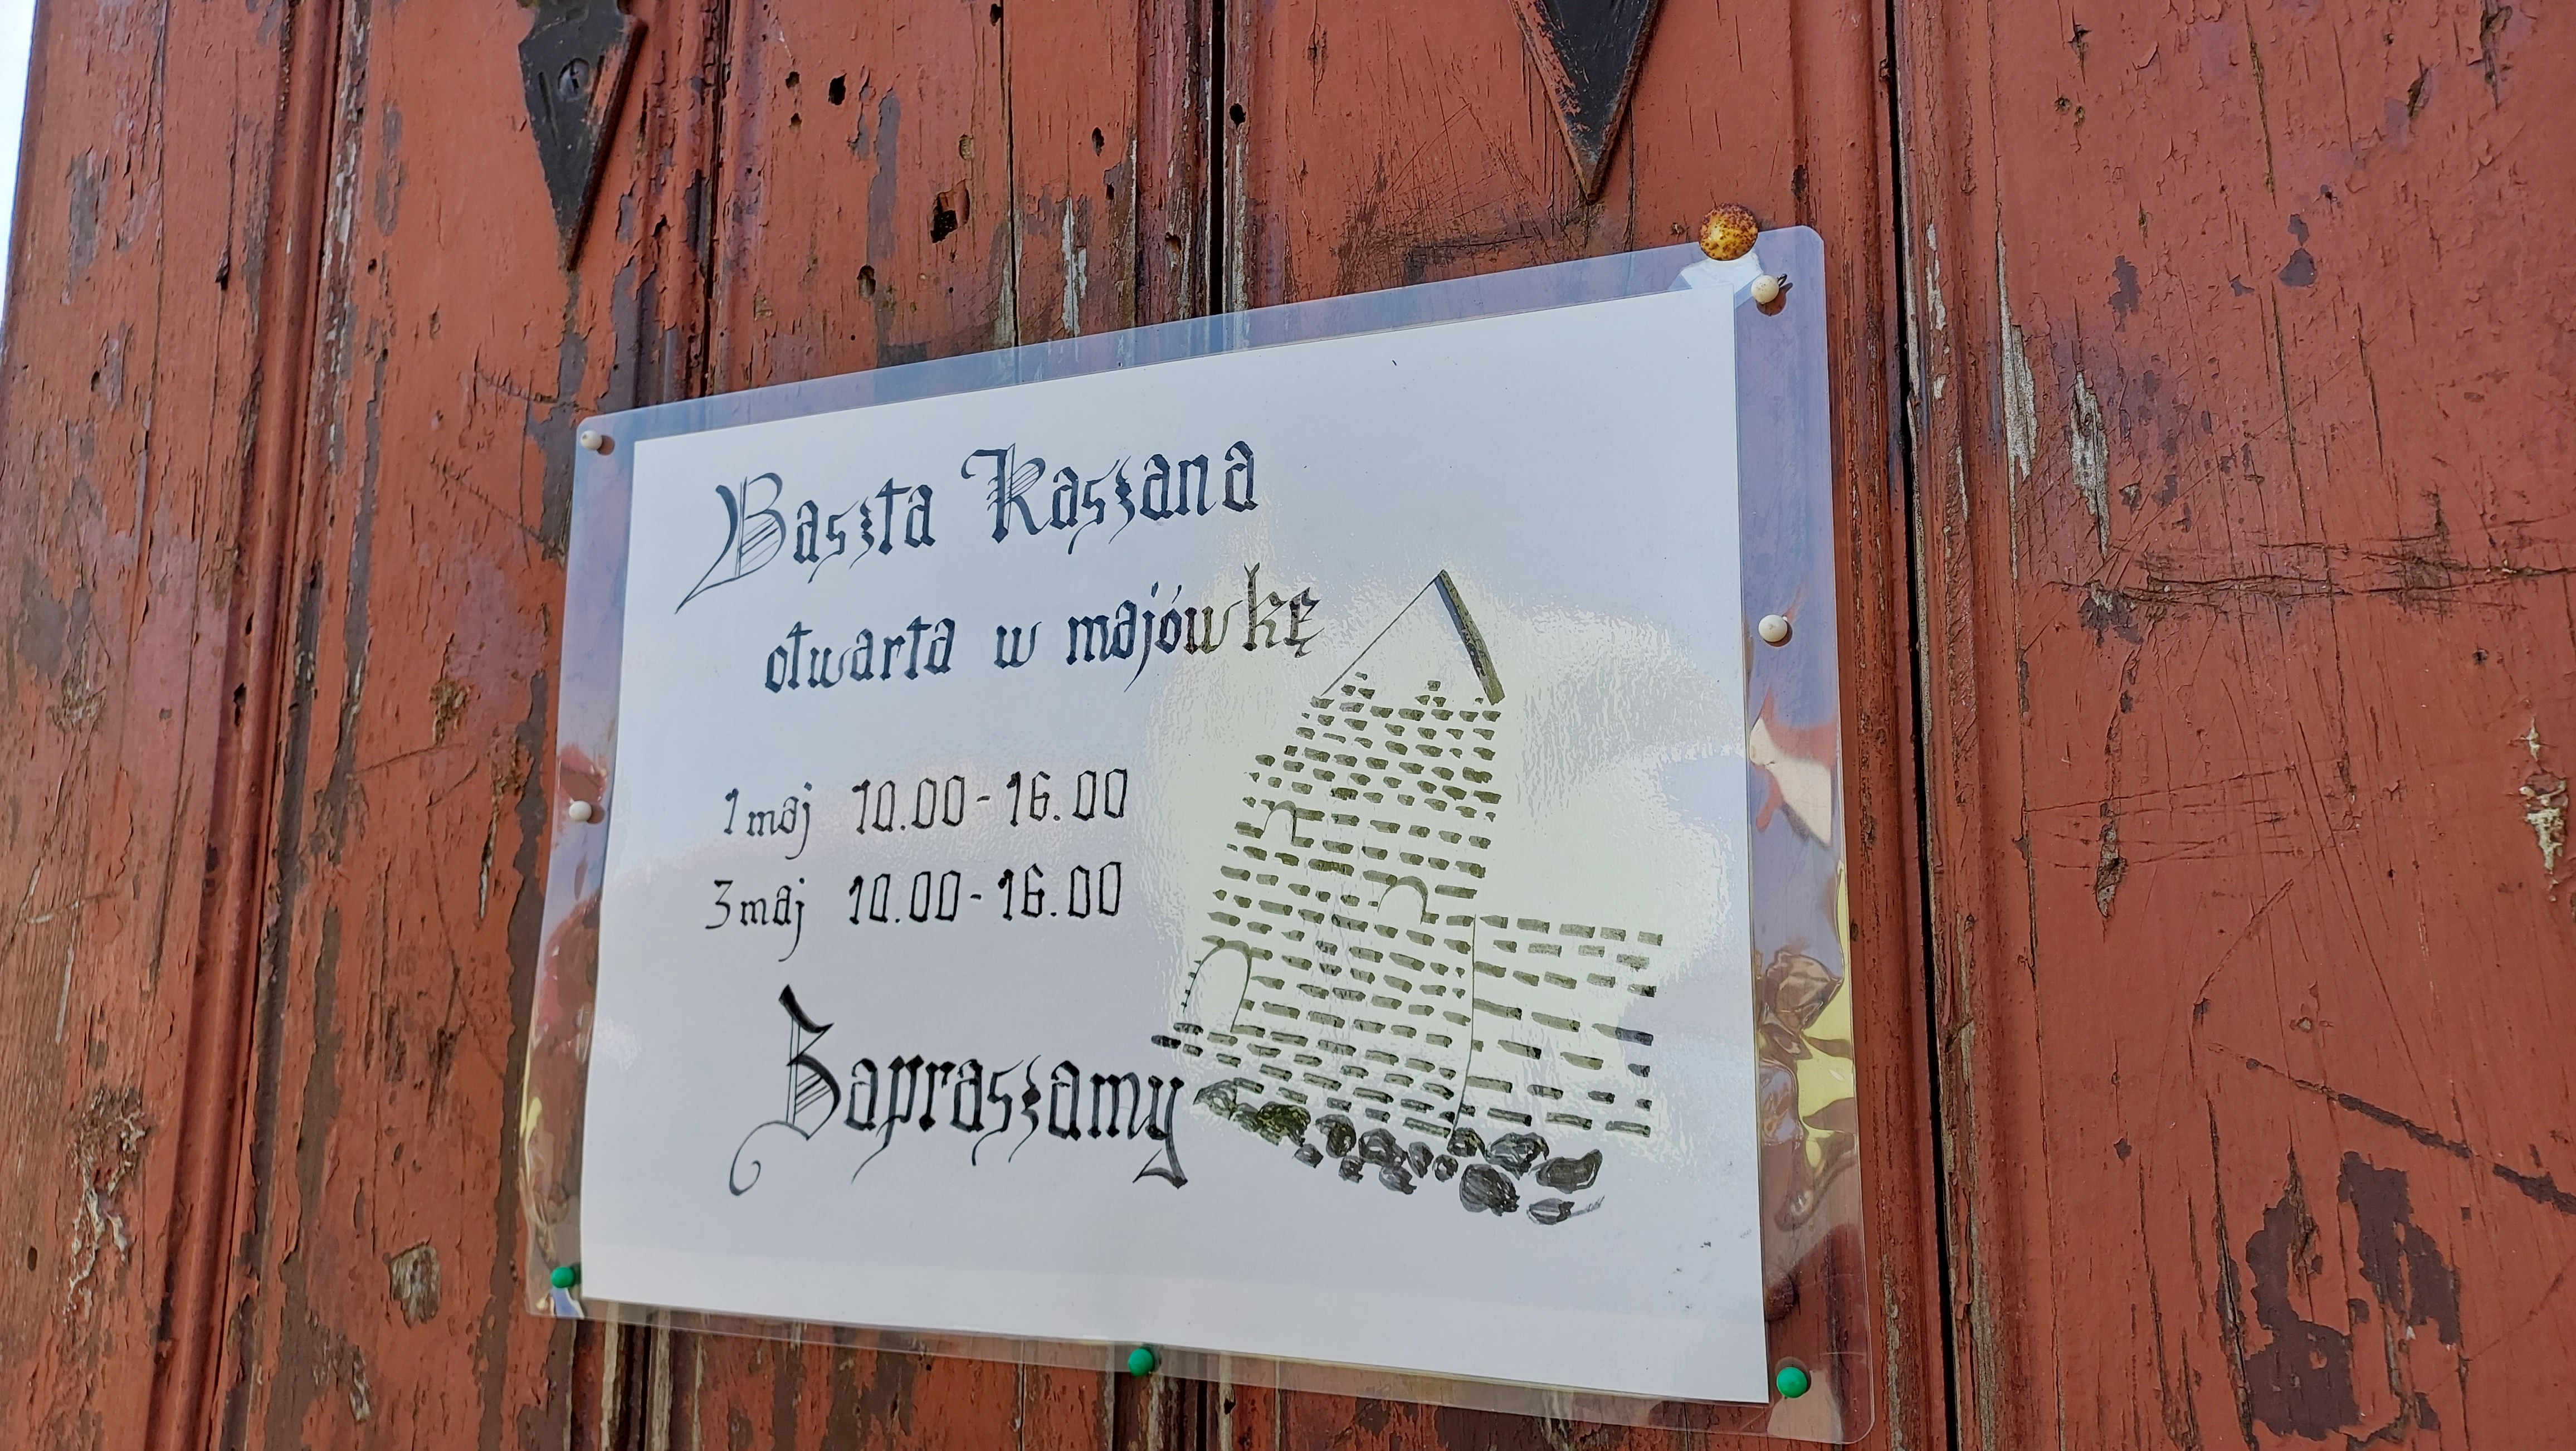 Baszta Kaszana
otwarta w majówkę
1 maj 10.00-16.00
3 maj 10.00-16.00
Zapraszamy